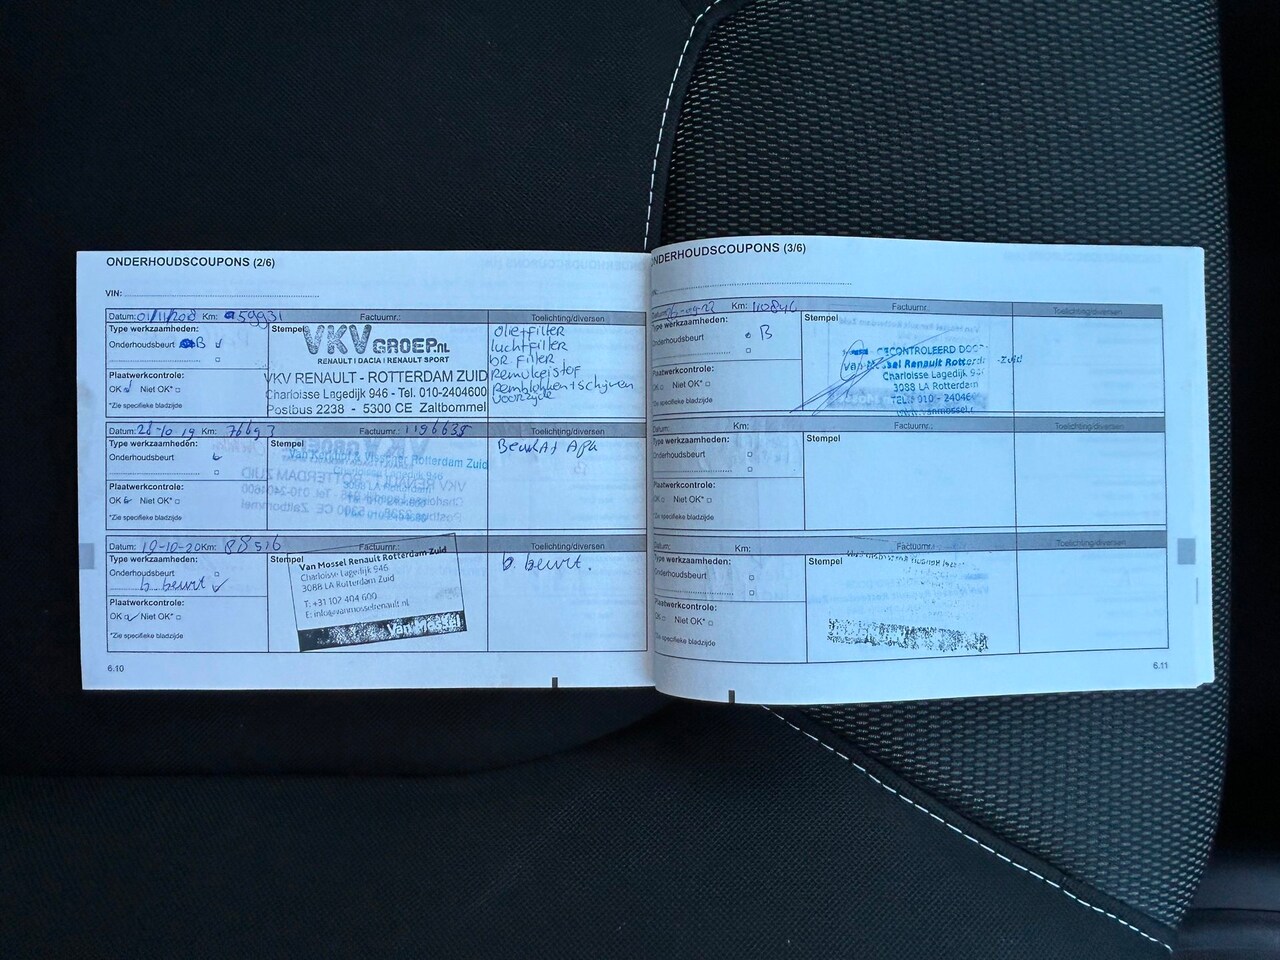 ONDERHOUDSCOUPONS (2/6)
VIN:
Datum: 01/11/2018 Km: 59931 Factuurnr.: Toelichting/diversen
Type werkzaamheden:
Onderhoudsbeurt B
Stempel
VKV GROEP.NL
RENAULT I DACIA I RENAULT SPORT
VKV RENAULT - ROTTERDAM ZUID
Charloisse Lagedijk 946 - Tel. 010-2404600
Postbus 2238 - 5300 CE Zaltbommel
oliefilter
luchtfilter
br. filter
remvloeistof
remblokken+schijven
voorzijde
Plaatwerkcontrole:
OK Niet OK*
*Zie specifieke bladzijde
Datum: 28-10-19 Km: 76693 Factuurnr.: 1196635 Toelichting/diversen
Type werkzaamheden:
Onderhoudsbeurt
Stempel
Rotterdam Zuid
Plaatwerkcontrole:
OK Niet OK*
*Zie specifieke bladzijde
Datum: 19-10-20 Km: 88516 Factuurnr.: Toelichting/diversen
Type werkzaamheden:
Onderhoudsbeurt
b. beurt
Stempel
Van Mossel Renault Rotterdam Zuid
Charloisse Lagedijk 946
3088 LA Rotterdam Zuid
T: +31 102 404 600
E: info@vanmosselrenault.nl
Van Mossel
b. beurt.
Plaatwerkcontrole:
OK Niet OK*
*Zie specifieke bladzijde
6.10
ONDERHOUDSCOUPONS (3/6)
Datum: Km: Factuurnr.: Toelichting/diversen
Type werkzaamheden:
Onderhoudsbeurt B
Stempel
GECONTROLEERD DOOR
Van Mossel Renault Rotterdam-Zuid
Charloisse Lagedijk 946
3088 LA Rotterdam
Plaatwerkcontrole:
OK Niet OK*
*Zie specifieke bladzijde
Datum: Km: Factuurnr.: Toelichting/diversen
Type werkzaamheden:
Onderhoudsbeurt
Stempel
Plaatwerkcontrole:
OK Niet OK*
*Zie specifieke bladzijde
Datum: Km: Factuurnr.: Toelichting/diversen
Type werkzaamheden:
Onderhoudsbeurt
Stempel
Plaatwerkcontrole:
OK Niet OK*
*Zie specifieke bladzijde
6.11